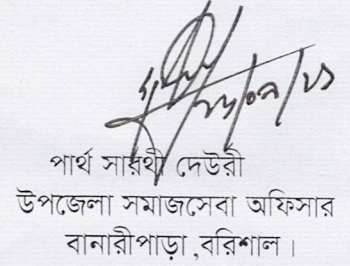 পার্থ সারথী দেউরী
উপজেলা সমাজসেবা অফিসার
বানারীপাড়া,বরিশাল।